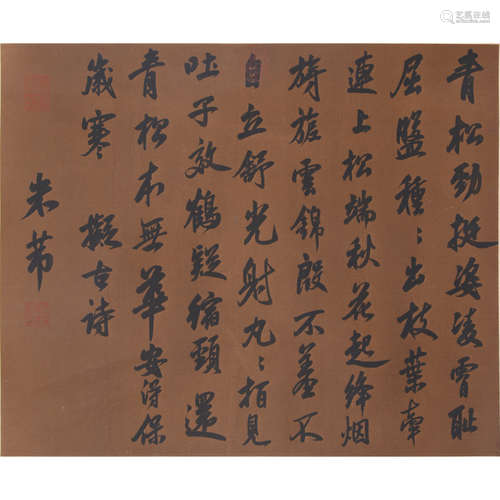 青松勁挺姿凌霄恥
屈盤種〻出枝葉牽
連上松端秋花起絳烟
旖旎雲錦殷不羞不
自立舒光射丸〻柏見
吐子效鶴疑縮頸還
青松本無華安得保
歲寒 擬古詩
米芾
艺狐在线